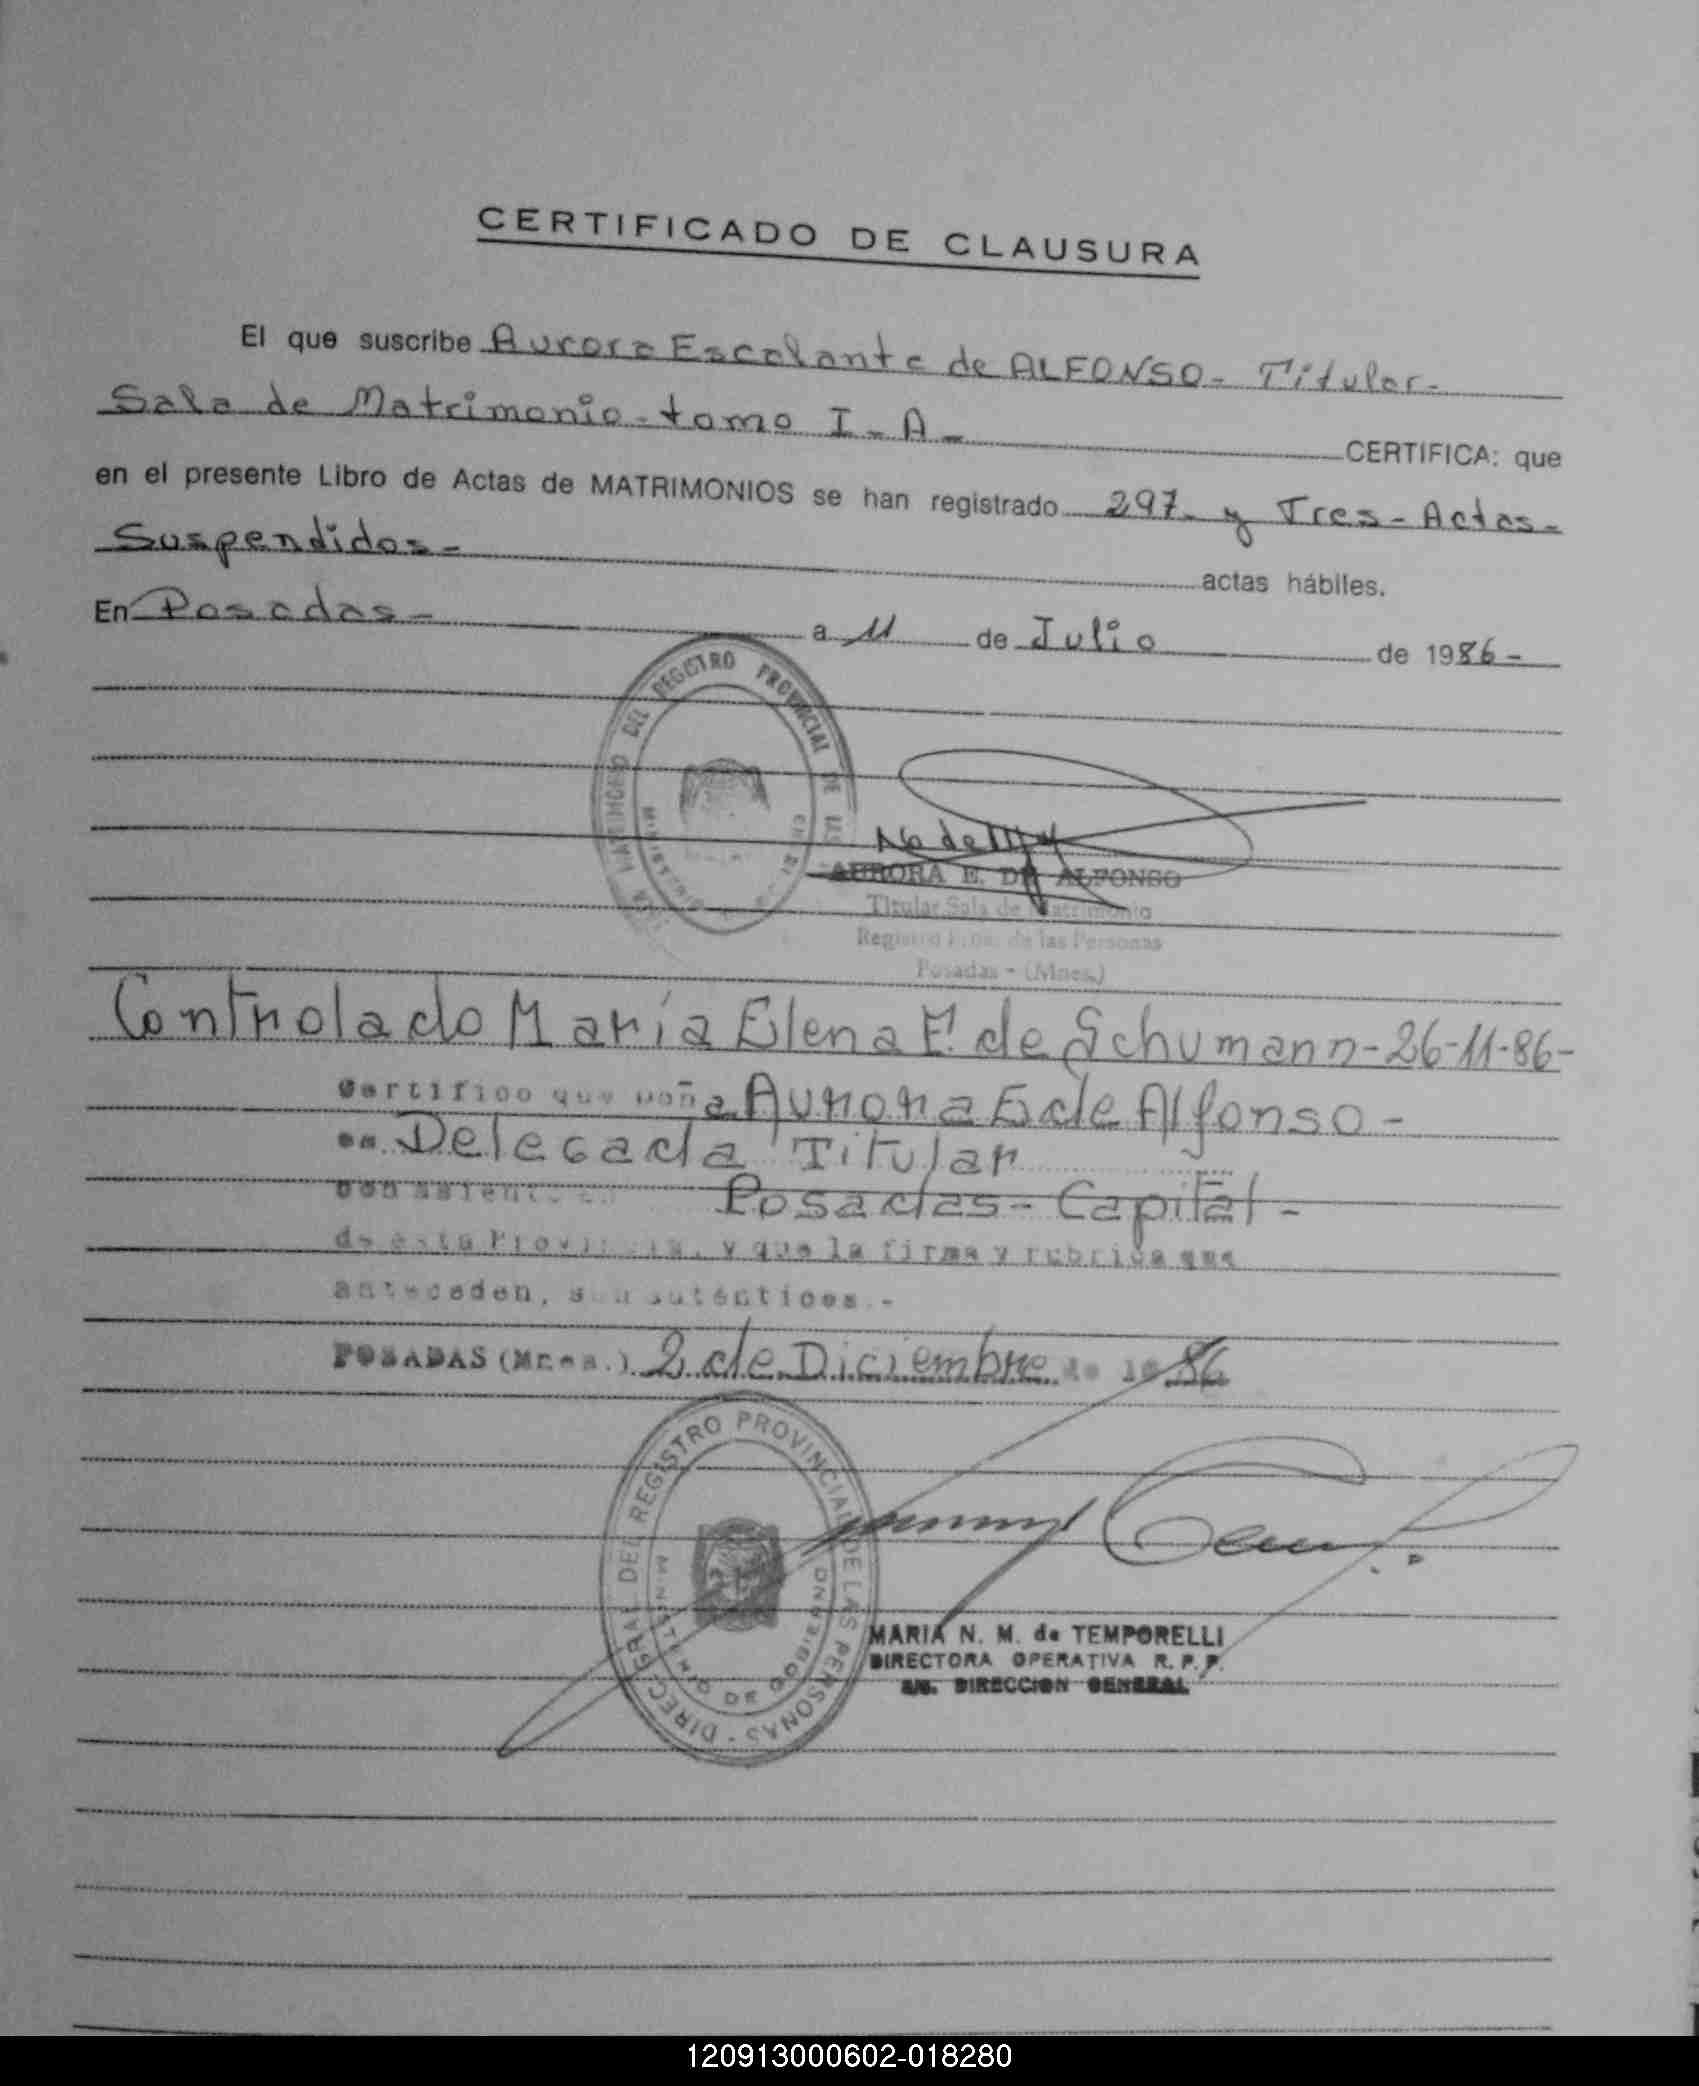 CERTIFICADO DE CLAUSURA
El que suscribe Aurora Escalante de ALFONSO - Titular -
Sala de Matrimonio - tomo I - A - CERTIFICA: que
en el presente Libro de Actas de MATRIMONIOS se han registrado 297 - y Tres - Actas -
Suspendidos - actas hábiles.
En Posadas - a 11 de Julio de 1986 -
MATRIMONIO DEL REGISTRO PROVINCIAL DE LAS
AURORA E. DE ALFONSO
Titular Sala de Matrimonio
Registro de las Personas
Posadas - (Mnes.)
Controlado María Elena F. de Schumann - 26-11-86 -
Certifico que doña Aurora E de Alfonso -
es Delegada Titular
con asiento en Posadas - Capital -
de esta Provincia, y que la firma y rubrica que
anteceden, son auténticos.-
POSADAS (Mnes.) 2 de Diciembre de 1986
DIREC. GRAL DEL REGISTRO PROVINCIAL DE LAS PERSONAS -
MINISTERIO DE GOBIERNO
MARIA N. M. de TEMPORELLI
DIRECTORA OPERATIVA R. P. P.
A/C. DIRECCION GENERAL
120913000602-018280